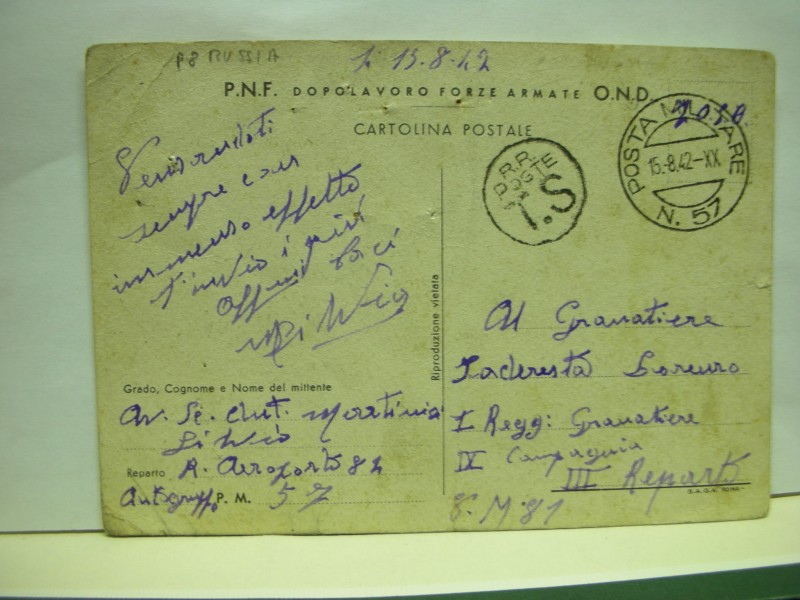 P8 RUSSIA
lì 15-8-42
P.N.F. DOPOLAVORO FORZE ARMATE O.N.D.
CARTOLINA POSTALE
POSTA MILITARE
15.-8.42-XX
N. 57
POSTE
T.S
sempre con
immenso affetto
t'invio i miei
baci
Silvio
Riproduzione vietata
Al Granatiere
Lorenzo
I Regg: Granatiere
IX Compagnia
III Reparto
P. M. 81
S.A.G.A. ROMA
Grado, Cognome e Nome del mittente
Av. Sc. Aut.
Silvio
Reparto R. Aeroporto 82
Autogruppo P. M. 57